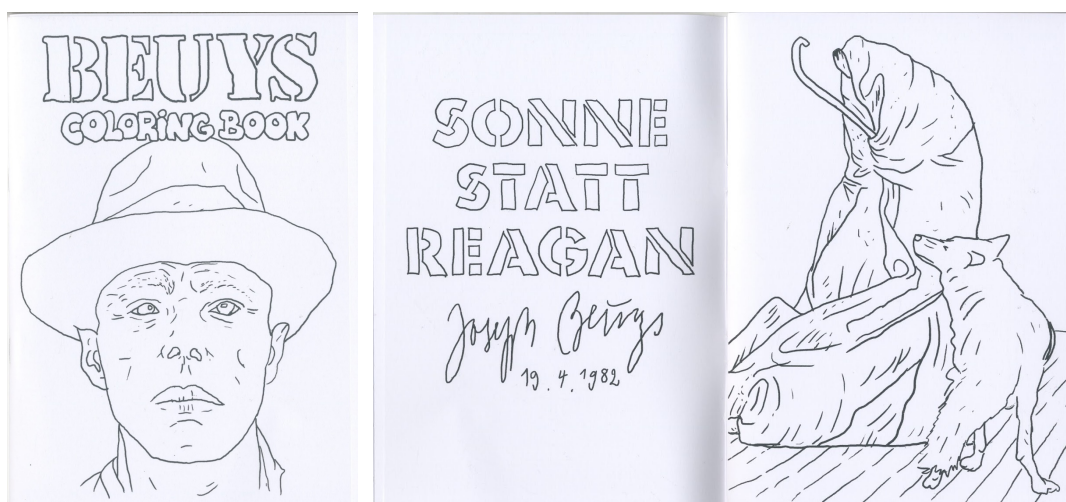 BEUYS
COLORING BOOK
SONNE
STATT
REAGAN
Joseph Beuys
19.4.1982